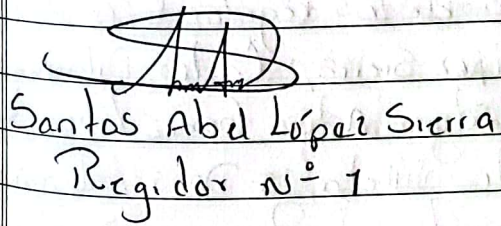 Santos Abel López Sierra
Regidor Nº 1